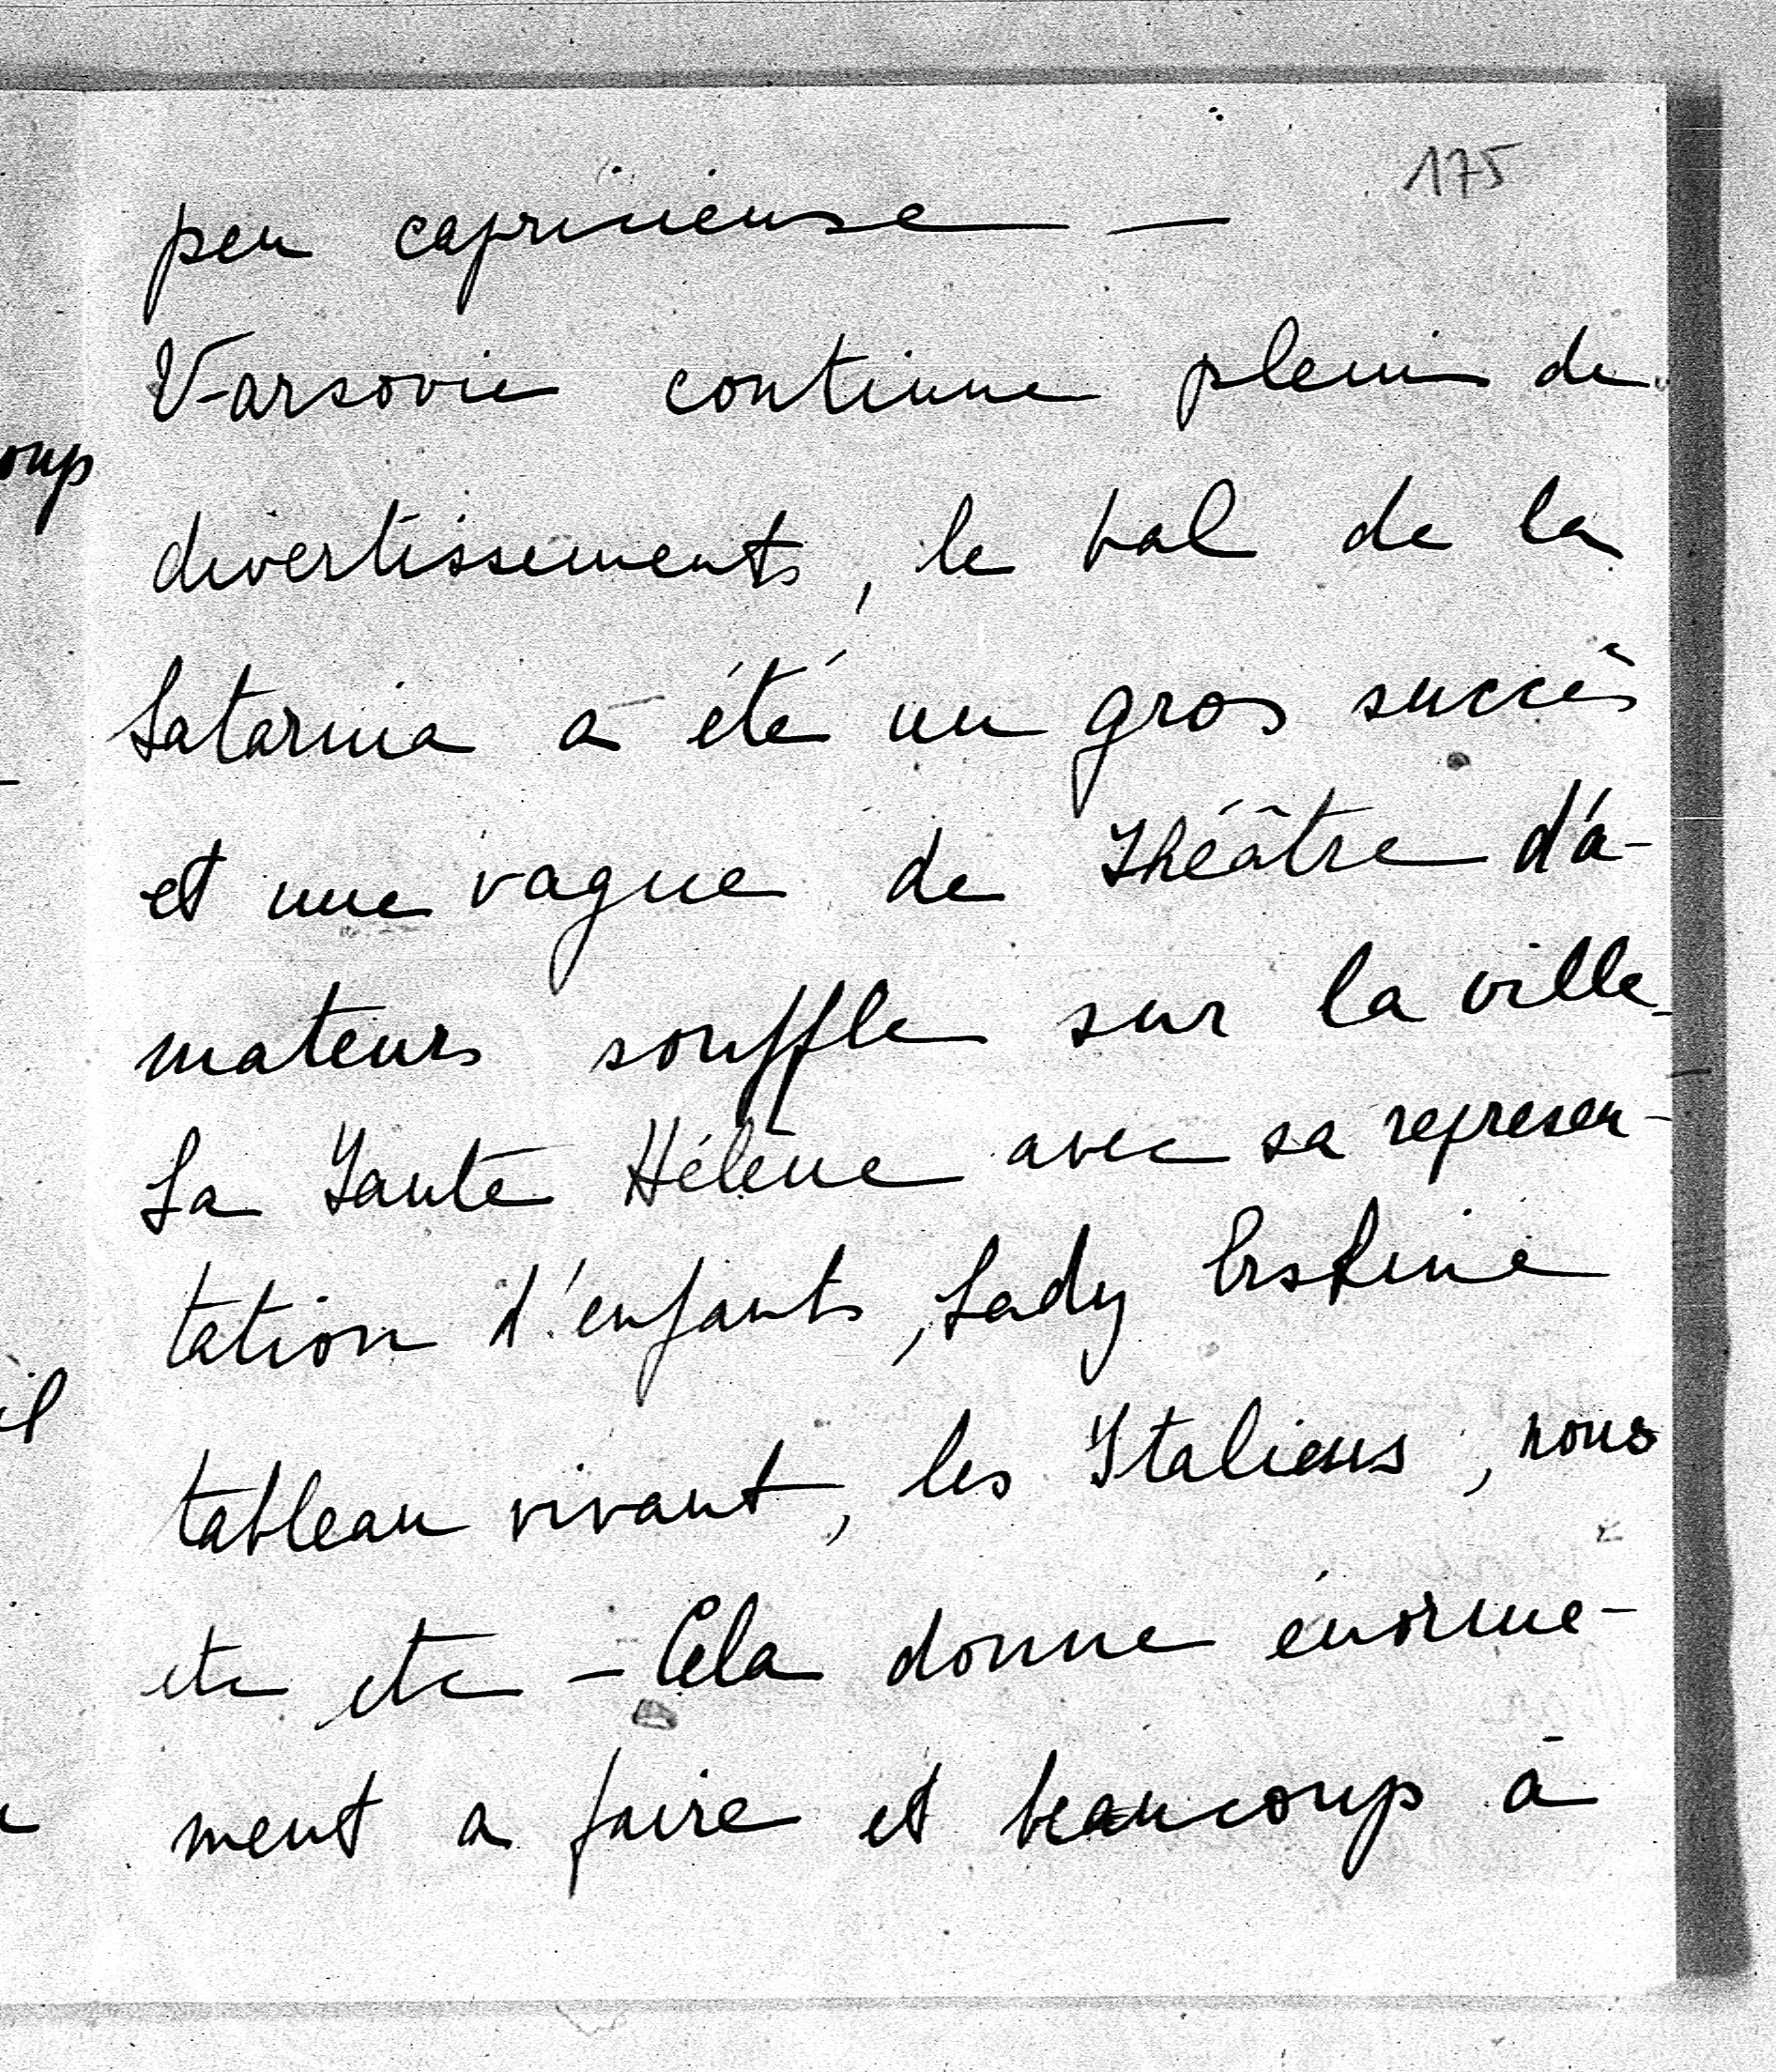 175
peu capricieuse —
Varsovie continue plein de
oup
divertissements, le bal de la
Latarnia a été un gros succès
et une vague de Théâtre d'a-
mateurs souffle sur la ville
La Tante Hélène avec sa represen-
tation d'enfants, Lady Erskine
il
tableau vivant, les Italiens, nous
etc etc — Cela donne énorme-
ment a faire et beaucoup à